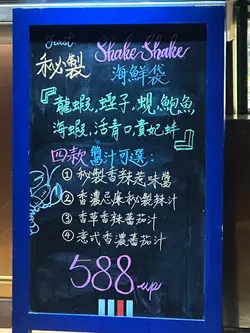 Feast Shake-Shake
秘製 海鮮袋
『龍蝦、蟶子、蜆、鮑魚
海蝦、活青口、貴妃蚌』
四款醬汁可選：
① 秘製香辣惹味醬
② 香濃忌廉秘製辣汁
③ 香草香辣蕃茄汁
④ 意式香濃蕃茄汁
588-up